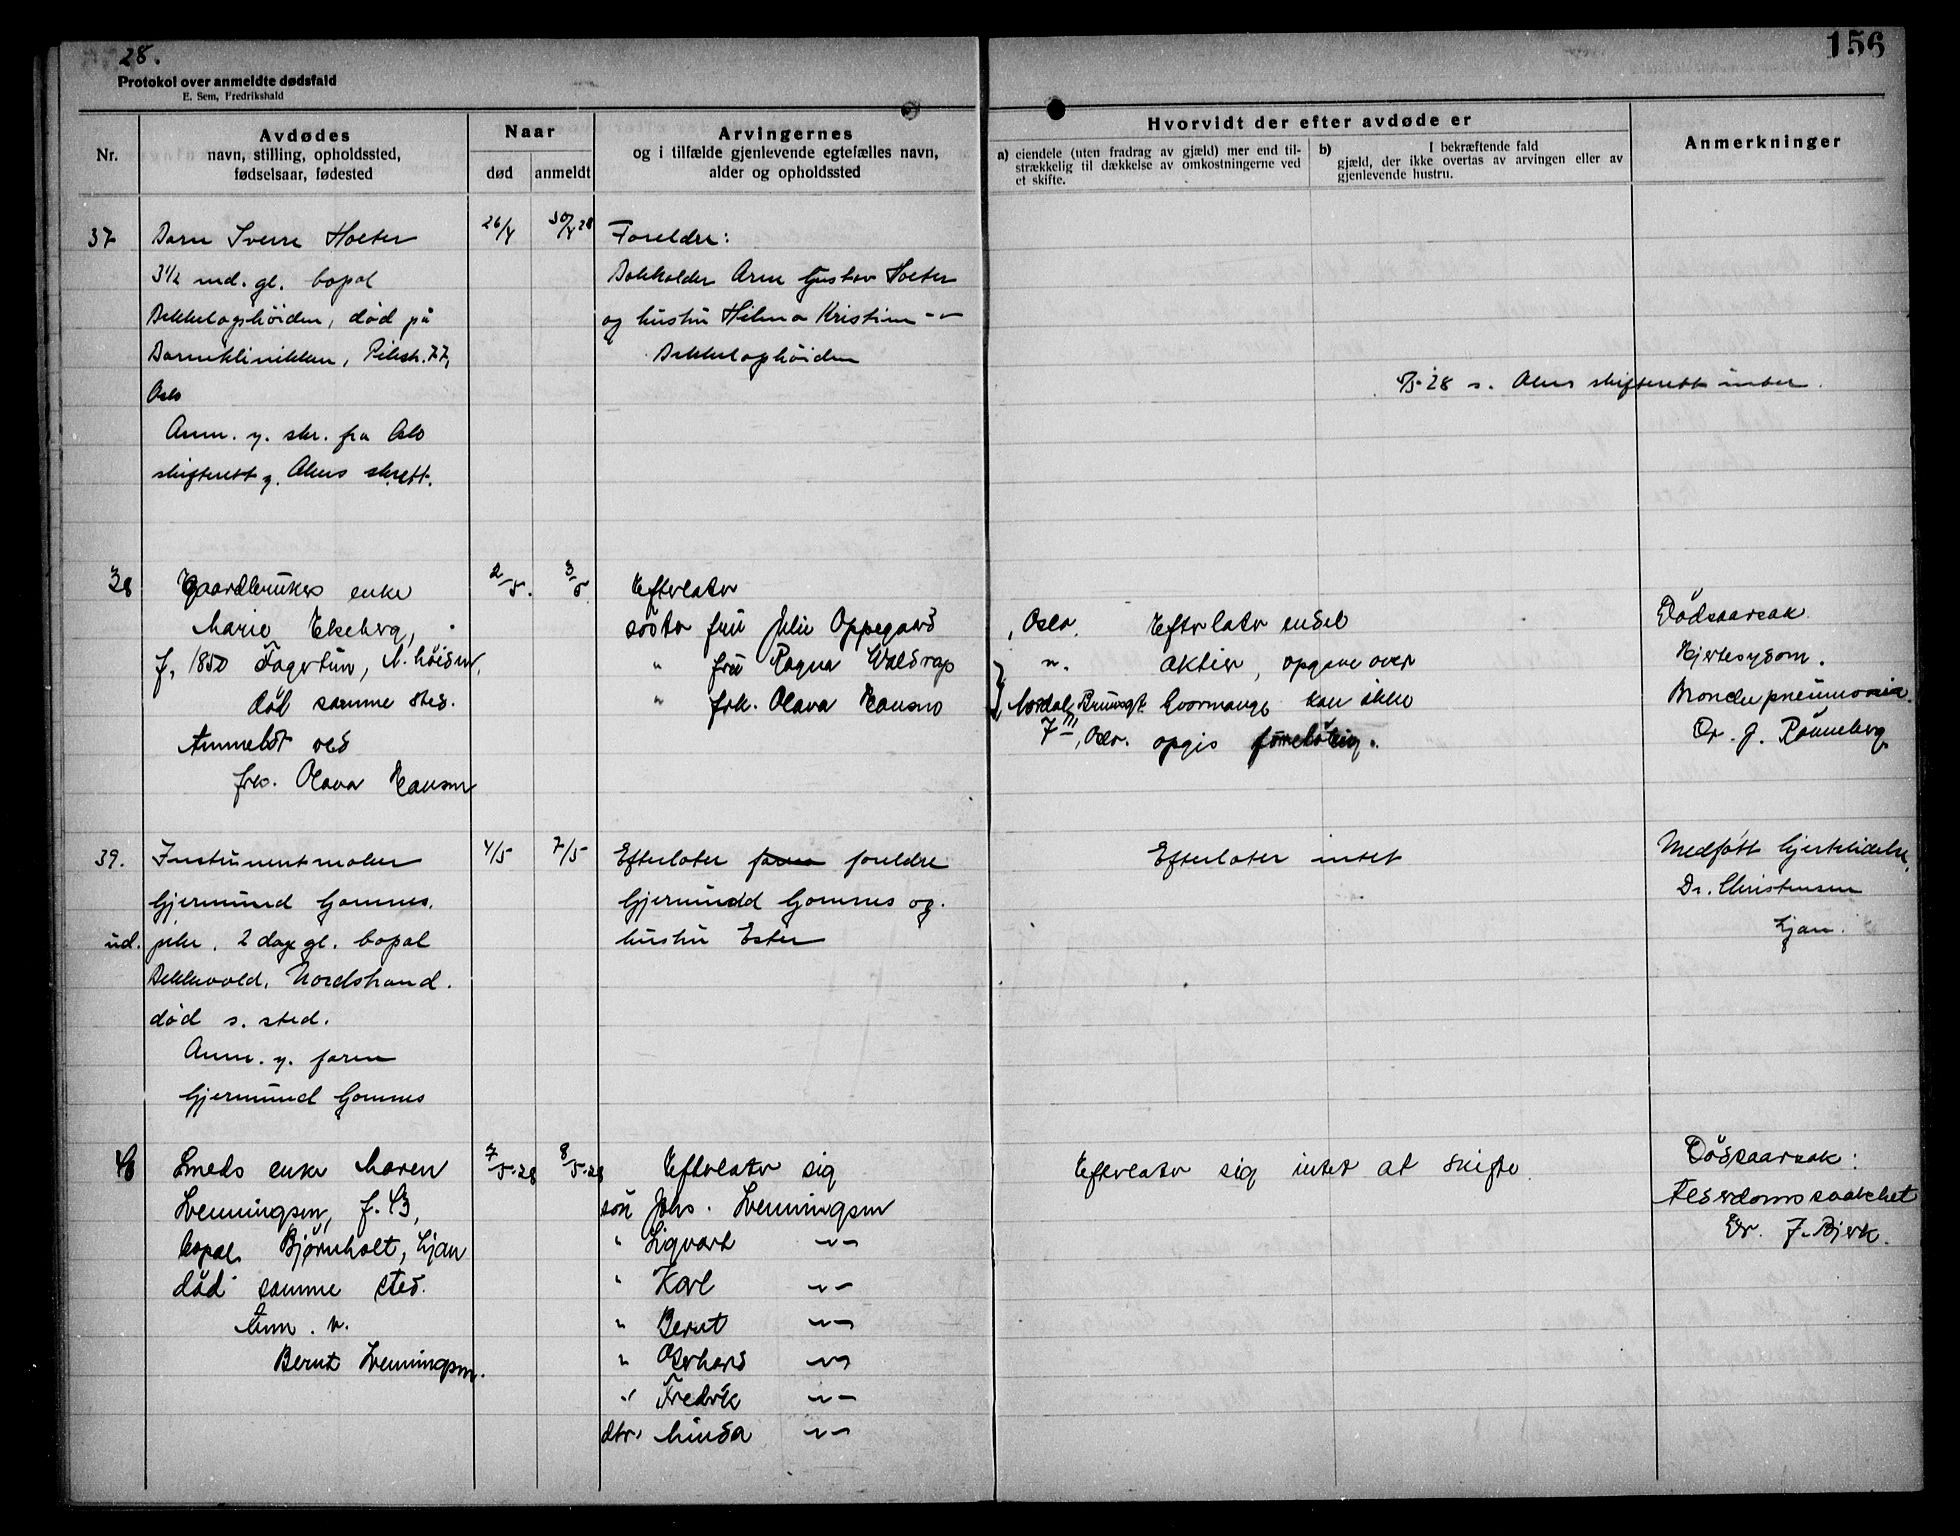 28.
156
Protokol over anmeldte dødsfald
E. Sem, Fredrikshald
Nr.
Avdødes
navn, stilling, opholdssted,
fødselsaar, fødested
Naar
død
anmeldt
Arvingernes
og i tilfælde gjenlevende egtefælles navn,
alder og opholdssted
Hvorvidt der efter avdøde er
a) eiendele (uten fradrag av gjæld) mer end til-
strækkelig til dækkelse av omkostningerne ved
et skifte.
b) I bekræftende fald
gjæld, der ikke overtas av arvingen eller av
gjenlevende hustru.
Anmerkninger
37
Barn Sverre Holter
3 1/2 md. gl. bopæl
Bekkelagshöiden, död på
Barneklinikken, Pilestr. 77,
Oslo
Anm. g. skr. fra Oslo
skifterett g. Akers skrett.
26/4
30/4 28
Foreldre:
Bokholder Arne Gustav Holter
og hustru Hilma Kristine -"-
Bekkelagshöiden
5/5-28 s. Akers skifterett intet.
38
Gaardbrukers enke
Marie Ekeberg,
f. 1850 Fagertun,
död samme sted.
Anmeldt ved
frk. Olava Hansen
2/5.
3/5.
Efterlater
söster fru Julie Oppegaard
" fru Ragna Waldrap
" frk. Olava Hansen
, Oslo.
".
Nordal Brunsgt.
7 III, Oslo.
Efterlater endel
aktier, opgave over
hvormange kan ikke
opgis foreløbig.
Dödsaarsak.
Hjertesygdom.
Bronchupneumonia.
Dr. G. Rönneberg.
39.
ud.
Instrumentmaker
Gjermund Gomnes.
pike. 2 dage gl. bopæl
Bekkevold, Nordstrand.
död s. sted.
Anm. g. faren
Gjermund Gomnes
4/5
7/5
Efterlater foreldre
Gjermund Gomnes og
hustru Ester
Efterlater intet
Medfött hjertelidelse,
Dr. Christensen
Ljan.
40
Smeds enke Maren
Henningsen, f. 43,
bopæl Bjørnholt, Ljan
död samme sted.
Anm. v.
Bernt Henningsen.
7/5-28
8/5-28
Efterlater sig
sön Johs. Henningsen
" Sigvart -"-
" Karl -"-
" Bernt -"-
" Gerhard -"-
" Fredrik -"-
dtr. Minda -"-
Efterlater sig intet at skifte.
Dödsaarsak:
Alderdomssvakhet
Dr. J. Bjerk.